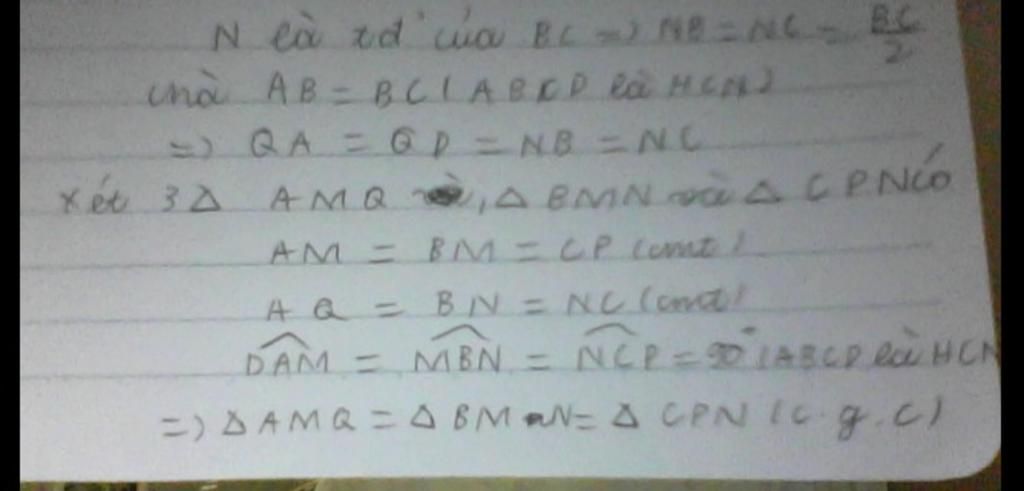 N là tđ của BC => NB = NC = BC/2
mà AB = BC ( ABCD là HCN )
=> QA = QD = NB = NC
xét 3 Δ AMQ , Δ BMN và Δ CPN Có
AM = BM = CP (cmt)
AQ = BN = NC (cmt)
\widehat{DAM} = \widehat{MBN} = \widehat{NCP} = 90° (ABCD là HCN
=> Δ AMQ = Δ BMN = Δ CPN (c.g.c)